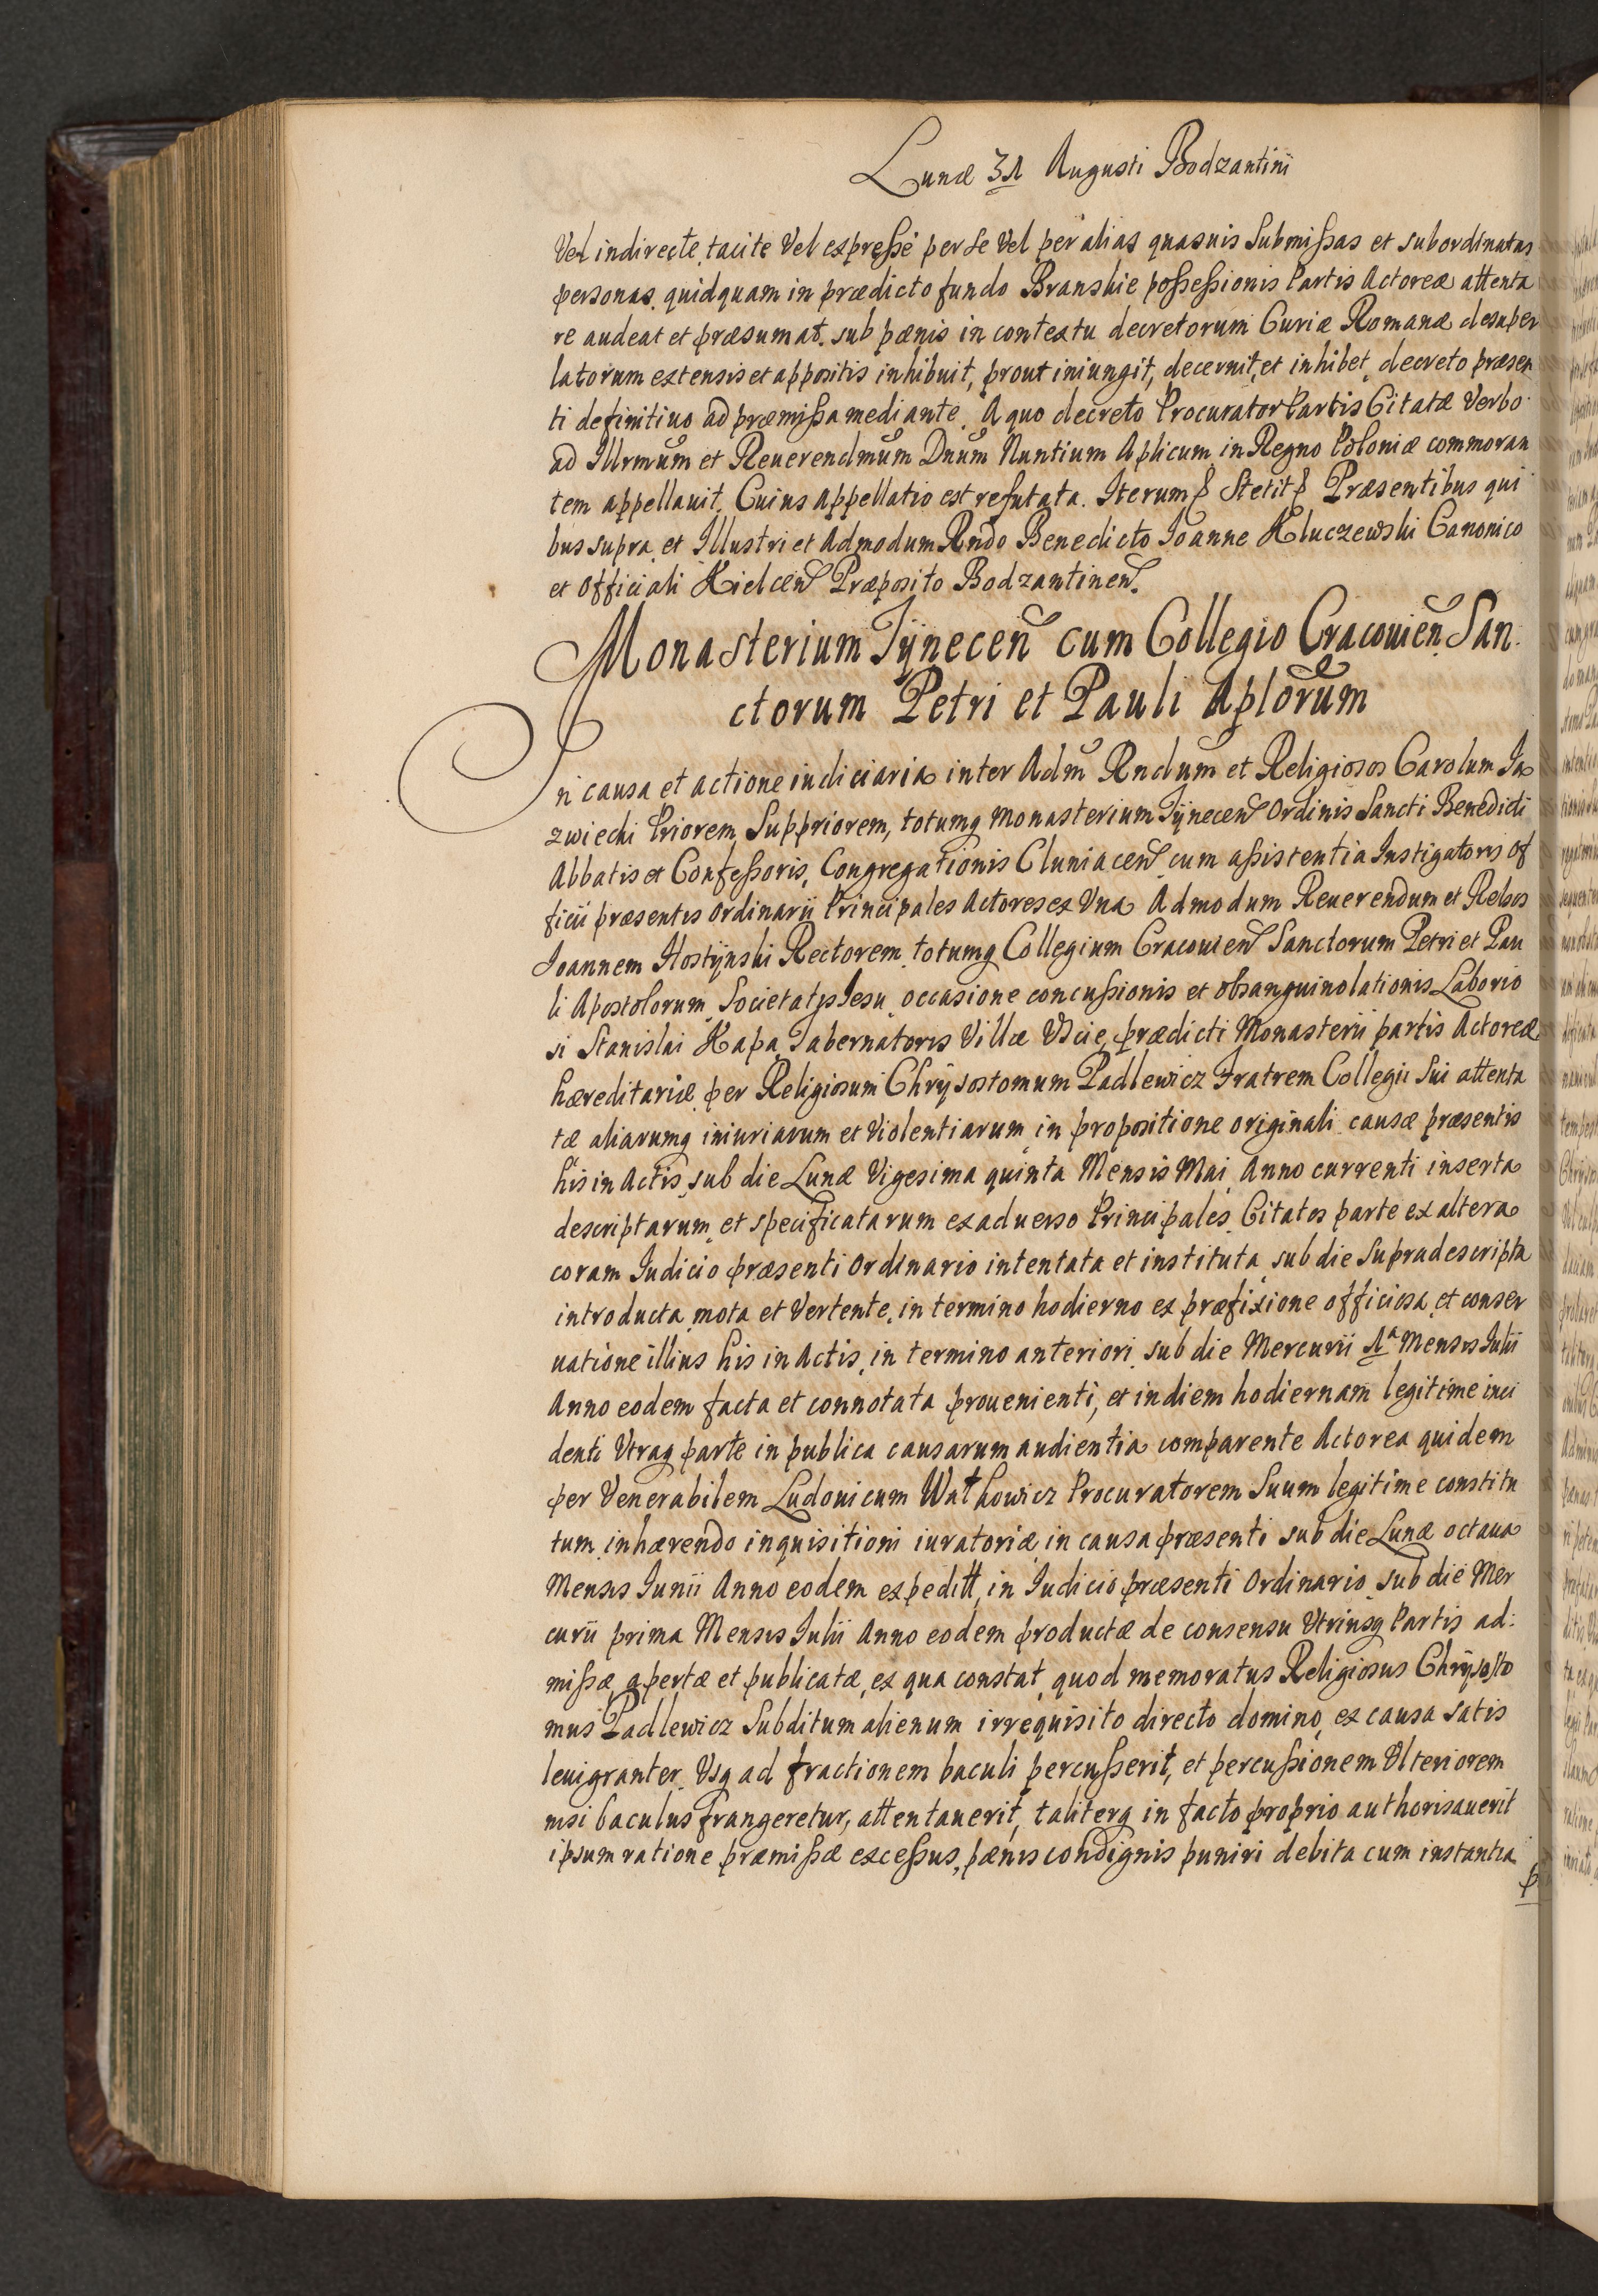 Lunæ 31 Augusti Bodzantinii
Vel indirecte, tacite Vel expresse per se Vel per alias quasuis submissas et subordinatas
personas quidquam in prædicto fundo Branskie possessionis Partis Actoreæ attenta
re audeat et præsumat. sub pœnis in contextu decretorum Curiæ Romanæ desuper
latorum extensis et appositis inhibuit, prout iniungit, decernit, et inhibet, decreto præsen
ti definitiuo ad præmissa mediante. A quo decreto Procurator Partis Citatæ Verbo
ad Illrmum et Reuerendmum Dnum Nuntium Aplicum in Regno Poloniæ commoran
tem appellauit. Cuius appellatio est refutata. Iterum & Stetit & Præsentibus qui
bus supra et Illustri et Admodum Rndo Benedicto Ioanne Kluczewski Canonico
et Officiali Kielcen Præposito Bodzantinen.
Monasterium Tÿnecen cum Collegio Cracouien San
ctorum Petri et Pauli Aplorum
In causa et actione iudiciaria inter Adm Rndum et Religiosos Carolum Ja
zwiecki Priorem, Suppriorem, totumq Monasterium Tÿnecen Ordinis Sancti Benedicti
Abbatis et Confessoris, Congregationis Cluniacen, cum assistentia Instigatoris of
ficii præsentis ordinarii Principales Actores ex Vna Admodum Reuerendum et Relsos
Ioannem Hostÿnski Rectorem, totumq Collegium Cracouien Sanctorum Petri et Pau
li Apostolorum Societatis Iesu, occasione concussionis et obsanguinolationis Laborio
si Stanislai Kapa Tabernatoris Villæ Vscie, prædicti Monasterii partis Actoreæ
hæreditariæ per Religiosum Chrÿsostomum Padlewicz Fratrem Collegii sui attenta
tæ aliarumq iniuriarum et Violentiarum in propositione originali causæ præsentis
his in Actis, sub die Lunæ Vigesima quinta Mensis Mai Anno currenti inserta
descriptarum et specificatarum ex aduerso Principales Citatos parte ex altera
coram Iudicio præsenti Ordinario intentata et instituta, sub die supradescripta
introducta mota et Vertente, in termino hodierno ex præfixione officiosa et conser
uatione illius his in Actis, in termino anteriori sub die Mercurii 1ª Mensis Iulii
Anno eodem facta et connotata prouenienti, et in diem hodiernam legitime inci
denti Vtraq parte in publica causarum audientia comparente Actorea quidem
per Venerabilem Ludouicum Watkowicz Procuratorem Suum legitime constitu
tum, inhærendo inquisitioni iuratoriæ, in causa præsenti sub die Lunæ octaua
Mensis Iunii Anno eodem expeditt, in Iudicio præsenti Ordinario sub die Mer
curii prima Mensis Iulii Anno eodem productæ de consensu Vtriusq Partis ad:
missæ, apertæ et publicatæ, ex qua constat, quod memoratus Religiosus Chrÿsosto
mus Padlewicz subditum alienum irrequisito directo domino, ex causa satis
leuigranter Vsq ad fractionem baculi percusserit, et percussionem Vlteriorem
nisi baculus frangeretur, attentauerit, taliterq in facto proprio authorisauerit
ipsum ratione præmissæ excessus, pænis condignis puniri debita cum instantia
p